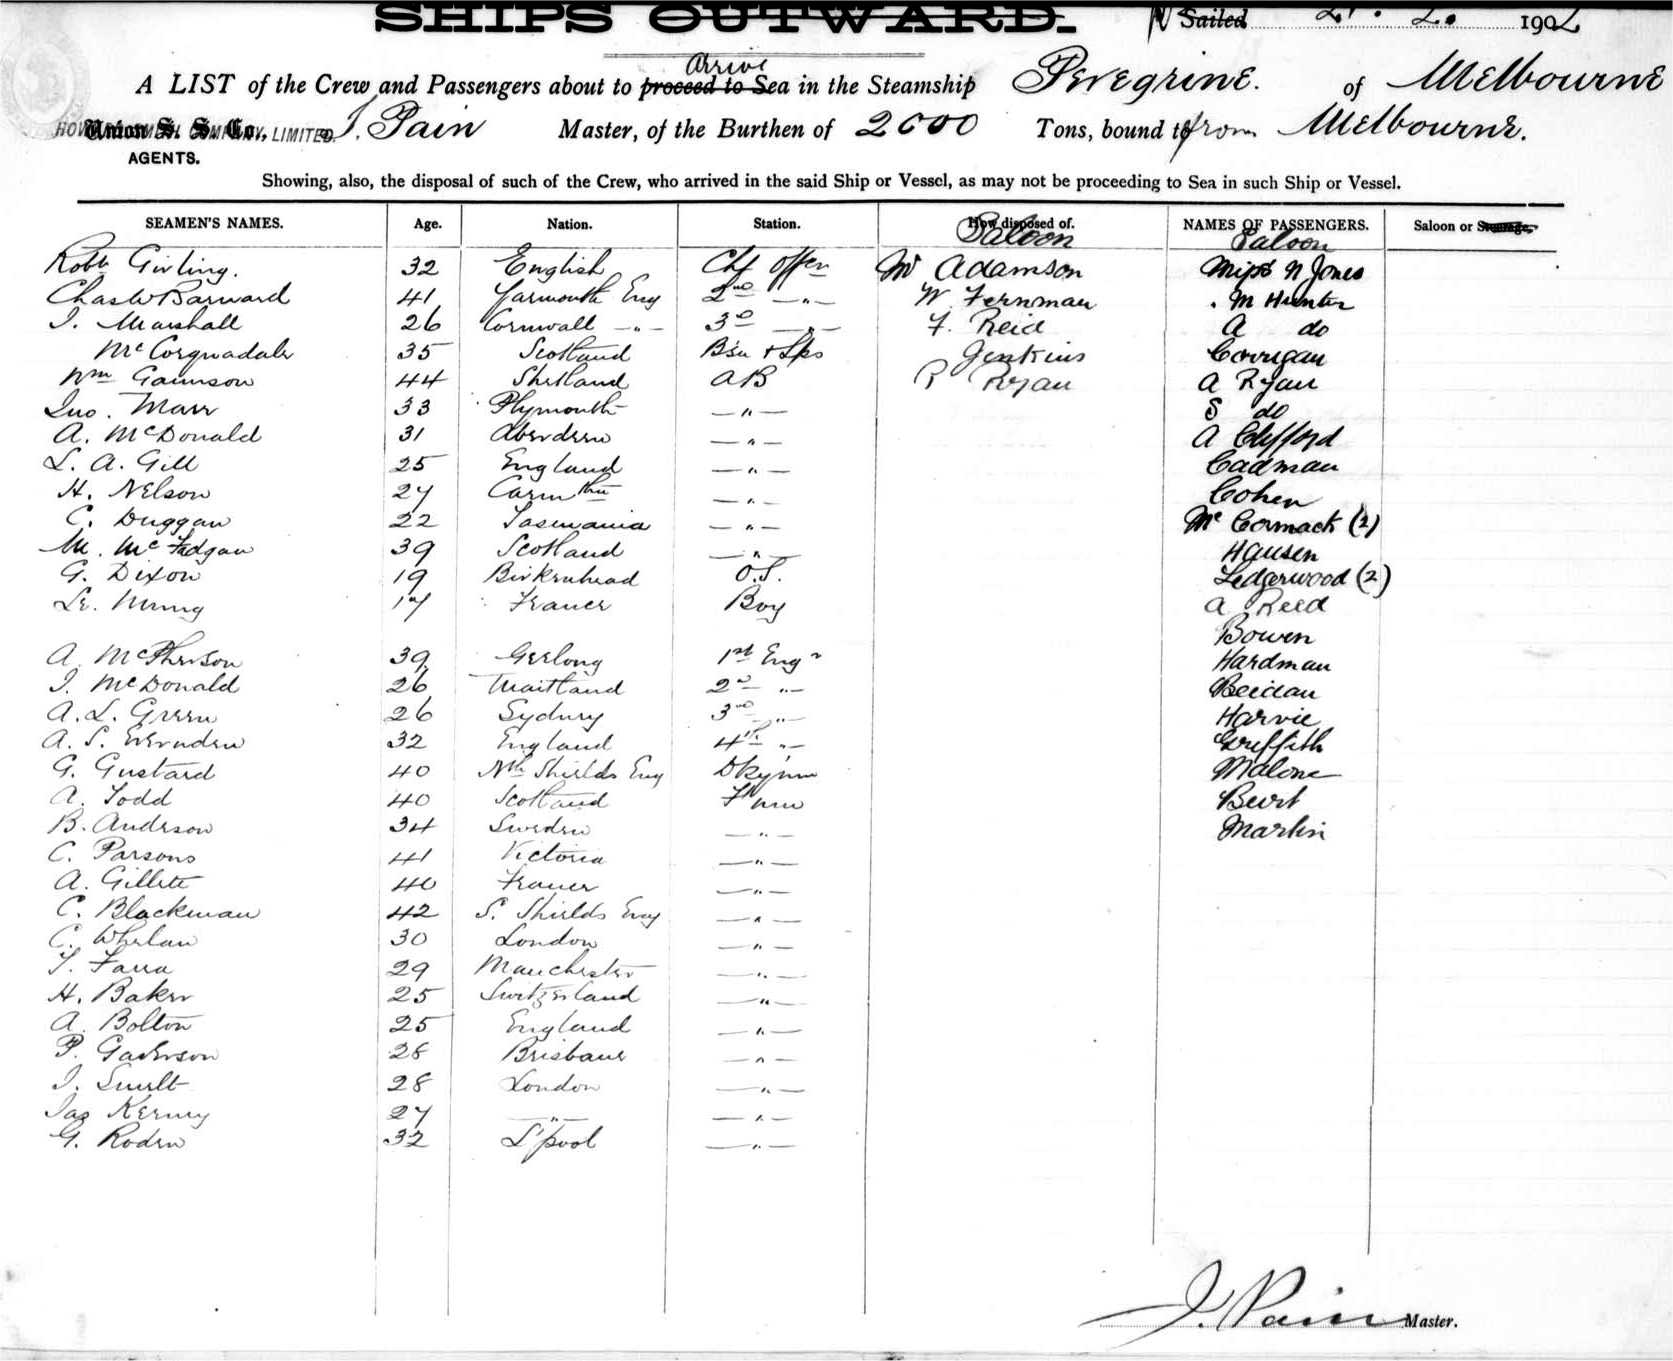 SHIPS OUTWARD.
Sailed 21. 2. 1902
Arrive
A LIST of the Crew and Passengers about to proceed to Sea in the Steamship Peregrine. of Melbourne
Union S. S. Co., LIMITED. J. Pain Master, of the Burthen of 2000 Tons, bound to from Melbourne.
AGENTS.
Showing, also, the disposal of such of the Crew, who arrived in the said Ship or Vessel, as may not be proceeding to Sea in such Ship or Vessel.
SEAMEN'S NAMES. Age. Nation. Station. How disposed of. NAMES OF PASSENGERS. Saloon or Steerage.
Saloon Saloon
Robt Girling. 32 English Chf Offer Mr Adamson Misses N Jones
Chas W Barnard 41 Yarmouth Eng 2nd —"— W Fernman . M Hunter
J. Marshall 26 Cornwall —"— 3d —"— F. Reid A do
McCorquadale 35 Scotland Bsn & Lps Jenkins Corrigan
Wm Gaunson 44 Shetland AB R Ryan A Ryan
Jno. Marr 33 Plymouth —"— S do
A. McDonald 31 Aberdeen —"— A Clifford
L. A. Gill 25 England —"— Cadman
H. Nelson 27 —"— Cohen
C. Duggan 22 Tasmania —"— Mc Cormack (2)
M. McFadgan 39 Scotland —"— Hansen
G. Dixon 19 Birkenhead O.S. Ledgerwood (2)
17 France Boy A Reed
Bowen
A. McPherson 39 Geelong 1st Engr Hardman
J. McDonald 26 Maitland 2d "— Beidau
A. L. Green 26 Sydney 3rd "— Harvie
A. S. Evernden 32 England 4th "— Griffith
G. Gustard 40 Nth Shields Eng Dkymn Malone
A. Todd 40 Scotland Fmn Burt
B. Anderson 34 Sweden —"— Martin
C. Parsons 41 Victoria —"—
A. Gillete 40 France —"—
C. Blackman 42 S. Shields Eng —"—
C. Whelan 30 London —"—
T. Farra 29 Manchester —"—
H. Baker 25 Switzerland —"—
A. Bolton 25 England —"—
P. 28 Brisbane —"—
J. 28 London —"—
Jas Kenny 27 —"— —"—
G. Roden 32 L'pool —"—
J. Pain Master.